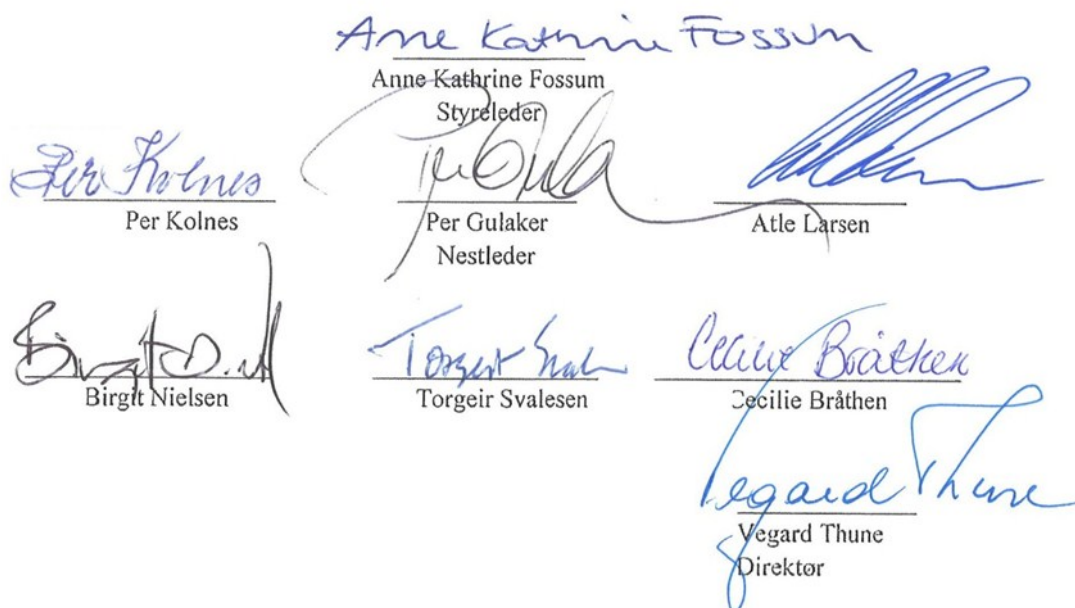 Anne Kathrine Fossum
Anne Kathrine Fossum
Styreleder
Per Kolnes
Per Kolnes
Per Gulaker
Nestleder
Atle Larsen
Birgit
Birgit Nielsen
Torgeir
Torgeir Svalesen
Cecilie Bråthen
Cecilie Bråthen
Vegard Thune
Vegard Thune
Direktør